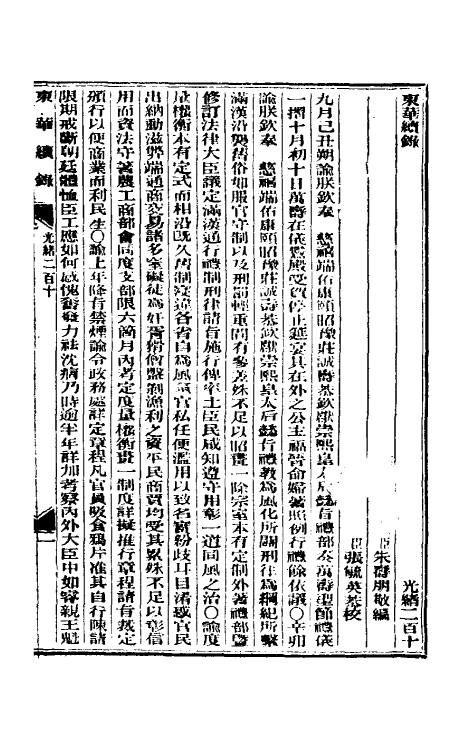 東華續錄
光緒二百十
臣朱壽朋敬編
臣張毓英恭校
九月己丑朔諭朕欽奉　慈禧端佑康頤昭豫莊誠壽恭欽獻崇熙皇太后懿旨禮部奏萬壽聖節禮儀
一摺十月初十日萬壽在儀鸞殿受賀停止筵宴其在外之公主福晉命婦著照例行禮餘依議〇辛卯
諭朕欽奉　慈禧端佑康頤昭豫莊誠壽恭欽獻崇熙皇太后懿旨禮教為風化所關刑律為綱紀所繫
滿漢沿襲舊俗如服官守制以及刑罰輕重間有參差殊不足以昭畫一除宗室本有定制外著禮部暨
修訂法律大臣議定滿漢通行禮制刑律請旨施行俾率土臣民咸知遵守用彰一道同風之治〇諭度
量權衡本有定式而相沿既久舊制寖違各省自為風氣官私任便濫用以致名實紛歧耳目淆惑官民
出納動滋弊端通商交易諸多窒礙徒為奸胥猾儈盤剝漁利之資平民商賈均受其累殊不足以彰信
用而資法守著農工商部會同度支部限六箇月內考定度量權衡畫一制度詳擬推行章程請旨裁定
頒行以便商業而利民生〇諭上年降旨禁煙諭令政務處詳定章程凡官員吸食鴉片准其自行陳請
限期戒斷朝廷體恤臣工應如何感愧奮發力祛沈痼乃時逾半年詳加考察內外大臣中如睿親王魁
東華續錄
光緒二百十
一